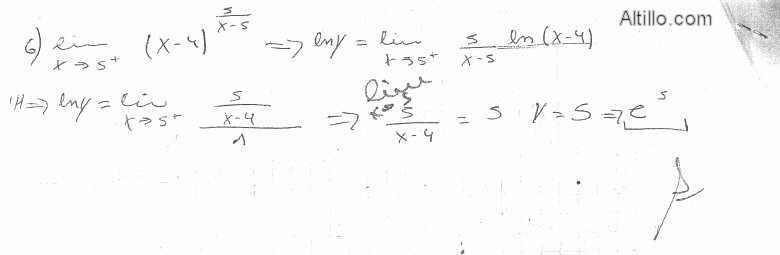 Altillo.com
6) lim x→5⁺ (x-4)^(5/(x-5)) => ln y = lim x→5⁺ 5/(x-5) ln(x-4)
'H => ln y = lim x→5⁺ (5/(x-4))/1 => lim x→5 5/(x-4) = 5 y = 5 => e⁵